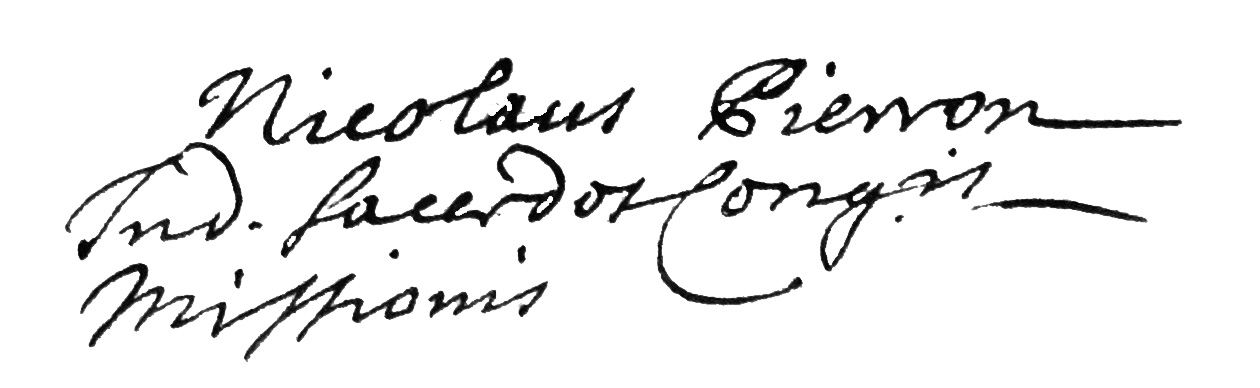 Nicolaus Pierron
Ind. Sacerdos Cong.is
Missionis